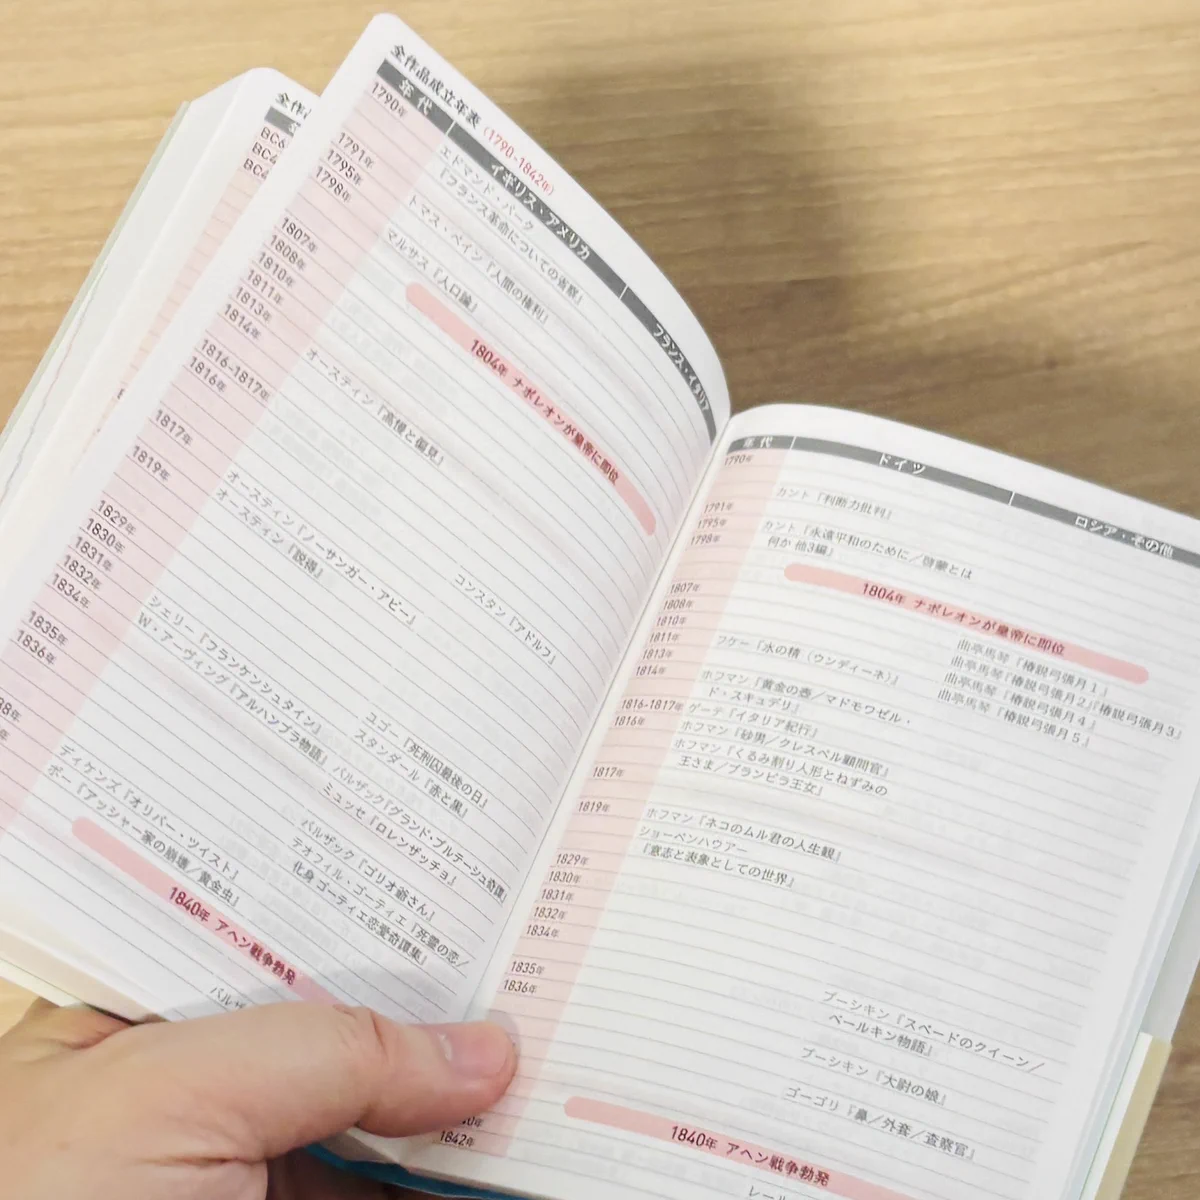 全作品成立年表 (1790-1842年)
年代
イギリス・アメリカ
フランス・イタリア
1790年
1791年
1795年
1798年
1807年
1808年
1810年
1811年
1813年
1814年
1816-1817年
1816年
1817年
1819年
1829年
1830年
1831年
1832年
1834年
1835年
1836年
エドマンド・バーク
『フランス革命についての省察』
トマス・ペイン『人間の権利』
マルサス『人口論』
1804年 ナポレオンが皇帝に即位
オースティン『高慢と偏見』
コンスタン『アドルフ』
オースティン『ノーサンガー・アビー』
オースティン『説得』
シェリー『フランケンシュタイン』
ユゴー『死刑囚最後の日』
スタンダール『赤と黒』
W・アーヴィング『アルハンブラ物語』
バルザック『グランド・ブルテーシュ奇譚』
ミュッセ『ロレンザッチョ』
バルザック『ゴリオ爺さん』
テオフィル・ゴーティエ『死霊の恋／
化身 ゴーティエ恋愛奇譚集』
ディケンズ『オリバー・ツイスト』
ポー『アッシャー家の崩壊／黄金虫』
1840年 アヘン戦争勃発
年代
ドイツ
ロシア・その他
1790年
1791年
1795年
1798年
1807年
1808年
1810年
1811年
1813年
1814年
1816-1817年
1816年
1817年
1819年
1829年
1830年
1831年
1832年
1834年
1835年
1836年
1842年
カント『判断力批判』
カント『永遠平和のために／啓蒙とは
何か 他3編』
1804年 ナポレオンが皇帝に即位
曲亭馬琴『椿説弓張月１』
曲亭馬琴『椿説弓張月２』『椿説弓張月３』
曲亭馬琴『椿説弓張月４』
曲亭馬琴『椿説弓張月５』
フケー『水の精（ウンディーネ）』
ホフマン『黄金の壺／マドモワゼル・
ド・スキュデリ』
ゲーテ『イタリア紀行』
ホフマン『砂男／クレスペル顧問官』
ホフマン『くるみ割り人形とねずみの
王さま／ブランビラ王女』
ホフマン『ネコのムル君の人生観』
ショーペンハウアー
『意志と表象としての世界』
プーシキン『スペードのクイーン／
ベールキン物語』
プーシキン『大尉の娘』
ゴーゴリ『鼻／外套／査察官』
1840年 アヘン戦争勃発